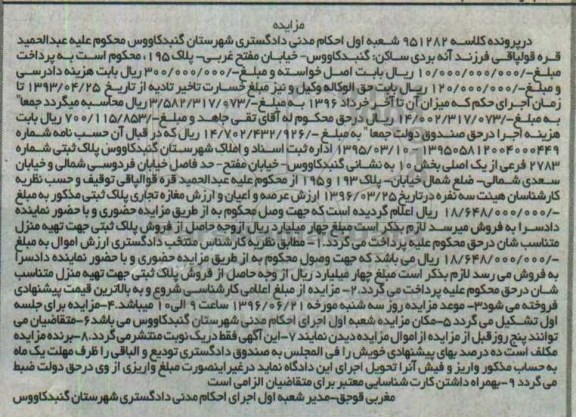 مزایده
درپرونده کلاسه ۹۵۱۲۸۲ شعبه اول احکام مدنی دادگستری شهرستان گنبدکاووس محکوم علیه عبدالحمید
قره قولباقی فرزند آنه بردی ساکن: گنبدکاووس- خیابان مفتح غربی- پلاک ۱۹۵، محکوم است به پرداخت
مبلغ-/۱۰/۰۰۰/۰۰۰/۰۰۰ ریال بابت اصل خواسته و مبلغ-/۳۰۰/۰۰۰/۰۰۰ ریال بابت هزینه دادرسی
و مبلغ-/۱۲۰/۰۰۰/۰۰۰ ریال بابت حق الوکاله وکیل و نیز مبلغ خسارت تاخیر تادیه از تاریخ ۱۳۹۳/۰۴/۲۵ تا
زمان اجرای حکم که میزان آن تا آخر خرداد ۱۳۹۶ به مبلغ-/۳/۵۸۲/۳۱۷/۰۷۳ ریال محاسبه میگردد جمعا"
به مبلغ-/۱۴/۰۰۲/۳۱۷/۰۷۳ ریال درحق محکوم له آقای تقی جاهد و مبلغ-/۷۰۰/۱۱۵/۸۵۳ ریال بابت
هزینه اجرا درحق صندوق دولت جمعا" به مبلغ -/۱۴/۷۰۲/۴۳۲/۹۲۶ ریال که در قبال آن حسب نامه شماره
۱۳۹۵۰۵۸۱۲۰۰۴۰۰۰۴۴۹-۱۳۹۵/۰۳/۱۰ اداره ثبت اسناد و املاک شهرستان گنبدکاووس پلاک ثبتی شماره
۲۷۸۳ فرعی از یک اصلی بخش ۱۰ به نشانی گنبدکاووس- خیابان مفتح- حد فاصل خیابان فردوسی شمالی و خیابان
سعدی شمالی- ضلع شمال خیابان- پلاک ۱۹۳ و ۱۹۵ از محکوم علیه عبدالحمید قره قولباقی توقیف و حسب نظریه
کارشناسان هیئت سه نفره در تاریخ ۱۳۹۶/۰۳/۲۵ ارزش عرصه و اعیان و ارزش مغازه تجاری پلاک ثبتی مذکور به مبلغ
-/۱۸/۶۴۸/۰۰۰/۰۰۰ ریال اعلام گردیده است که جهت وصل محکوم به از طریق مزایده حضوری و با حضور نماینده
دادسرا به فروش میرسد لازم بذکر است مبلغ چهار میلیارد ریال از وجه حاصل از فروش پلاک ثبتی جهت تهیه منزل
متناسب شان درحق محکوم علیه پرداخت می گردد. ۱- مطابق نظریه کارشناس منتخب دادگستری ارزش اموال به مبلغ
-/۱۸/۶۴۸/۰۰۰/۰۰۰ ریال می باشد که جهت وصول محکوم به از طریق مزایده حضوری و با حضور نماینده دادسرا
به فروش می رسد لازم بذکر است مبلغ چهار میلیارد ریال از وجه حاصل از فروش پلاک ثبتی جهت تهیه منزل متناسب
شان درحق محکوم علیه پرداخت می گردد. ۲- مزایده از مبلغ اعلامی کارشناسی شروع و به بالاترین قیمت پیشنهادی
فروخته می شود ۳- موعد مزایده روز سه شنبه مورخه ۱۳۹۶/۰۶/۲۱ ساعت ۹ الی ۱۰ میباشد. ۴- مزایده برای جلسه
اول تشکیل می گردد ۵- مکان مزایده شعبه اول اجرای احکام مدنی شهرستان گنبدکاووس می باشد ۶- متقاضیان می
توانند پنج روز قبل از مزایده از اموال مزایده دیدن نمایند ۷- این آگهی فقط دریک نوبت منتشر می گردد. ۸- برنده مزایده
مکلف است ده درصد بهای پیشنهادی خویش را فی المجلس به صندوق دادگستری تودیع و الباقی را ظرف مهلت یک ماه
به حساب مذکور واریز و فیش آنرا تحویل اجرای این دادگاه نماید درغیر اینصورت مبلغ واریزی از وی درحق دولت ضبط
می گردد ۹- بهمراه داشتن کارت شناسایی معتبر برای متقاضیان الزامی است
مغربی قوجق- مدیر شعبه اول اجرای احکام مدنی دادگستری شهرستان گنبدکاووس